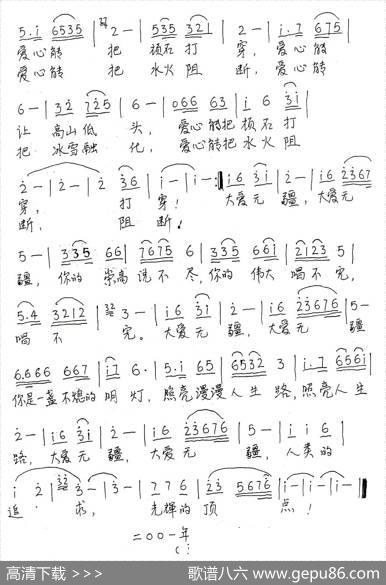 5.i 6535 | 2 - | 535 321 | 2 - | i.7 675 |
爱心能 把 顽石 打 穿, 爱心能
爱心能 把 水火 阻 断, 爱心能
6 - | 32 725 | 6 - | 066 63 | i 6 3i |
让 高山 低 头, 爱心能把 顽石 打
把 冰雪融 化, 爱心能把 水火 阻
2 - | 2 - | 2 36 | i - | i - :‖ i6 3i | 2 - | i6 2367 |
穿, 打 穿! 大爱无 疆, 大爱无
断, 阻 断!
5 - | 335 66 | 7675 6 | 335 66i | 2123 5 |
疆, 你的 崇高 说不 尽, 你的 伟大 唱不 完,
5.4 3212 | 3 - | i6 3i | 2 - | i6 23676 | 5 - |
唱 不 完。 大爱无 疆, 大爱无 疆
6.666 667 | i7 6. | 5.i 65 | 6532 3 | i.7 656i |
你是一盏 不熄的 明 灯, 照亮漫漫人生 路, 照亮人生
2 - | i6 3i | 2 - | i6 23676 | 5 - | i i6 |
路, 大爱无 疆, 大爱无 疆, 人类的
i 2 | 3 - | 3 - | 776 | 23 5676 | i - | i - | i - ‖
追 求, 光辉的 顶 点!
二00一年
高清下载 >>> 歌谱八六 www.gepu86.com